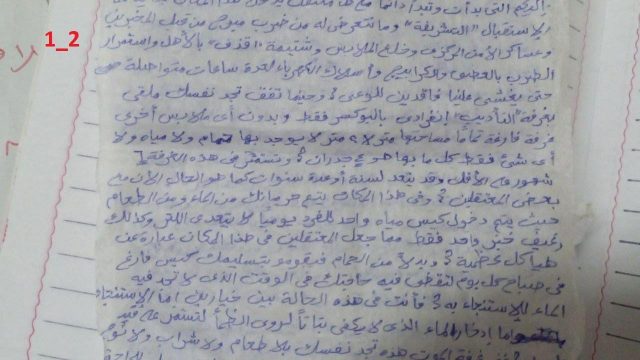 1_2
الاستقبال "التشريفة" وما نتعرض له من ضرب مبرح من قبل المخبرين
وعساكر الأمن المركزي وخلع الملابس وشتيمة وقذف بالأهل واستمرار
الضرب بالعصى والكرابيج وأسلاك الكهرباء لعدة ساعات متواصلة
حتى يغشى علينا فاقدين للوعى وحينما تفق تجد نفسك ملقى
بغرفة "التأديب" إنفرادى بالبوكسر فقط وبدون أى ملابس أخرى
غرفة فارغة تماماً مساحتها متر لا يوجد بها حمام ولا مياه ولا
أى شئ فقط كل ما بها هو جدران وتستمر فى هذه الغرفة
شهور على الأقل وقد يتعد لسنة أو عدة سنوات كما هو الحال الآن مع
بعض المعتقلين وفى هذا المكان يتم حرمانك من الماء ومن الطعام
حيث يتم دخول كيس مياه واحد للفرد يومياً لا يتعدى اللتر وكذلك
رغيف خبز واحد فقط مما جعل المعتقلين فى هذا المكان عبارة عن
هياكل عظمية وبدلاً من الحمام فيقومو بتسليمك كيس فارغ
فى صباح كل يوم لتقضى فيه حاجتك فى الوقت الذى لا تجد فيه
الماء للإستنجاء به فأنت فى هذه الحالة بين خيارين إما الإستنجاء
وإما إدخار الماء الذى لا يكفى بتاتاً لروى الظمأ لتستمر على قيد
هذه تجد نفسك بلا طعام ولا شراب ولا نوم